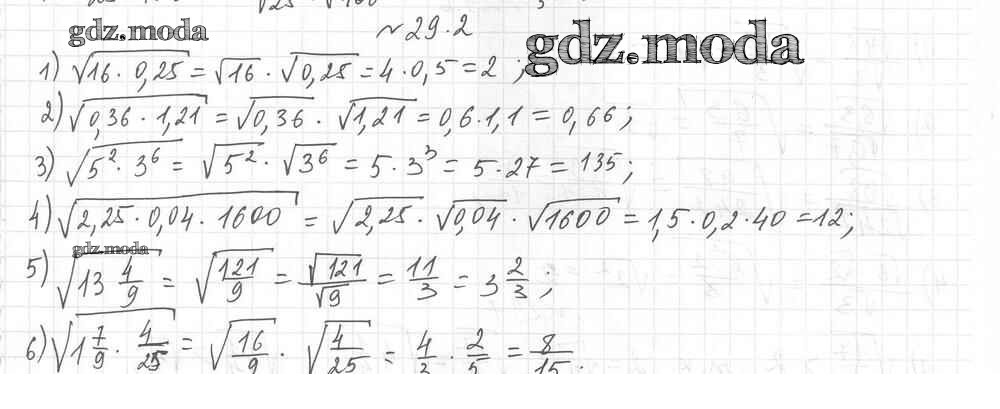 √25 √160
gdz.moda №29.2 gdz.moda
1) √16 · 0,25 = √16 · √0,25 = 4 · 0,5 = 2 ;
2) √0,36 · 1,21 = √0,36 · √1,21 = 0,6 · 1,1 = 0,66 ;
3) √5² · 3⁶ = √5² · √3⁶ = 5 · 3³ = 5 · 27 = 135 ;
4) √2,25 · 0,04 · 1600 = √2,25 · √0,04 · √1600 = 1,5 · 0,2 · 40 = 12 ;
gdz.moda
5) √13 4/9 = √121/9 = √121/√9 = 11/3 = 3 2/3 ;
6) √1 7/9 · 4/25 = √16/9 · √4/25 = 4/3 · 2/5 = 8/15 .